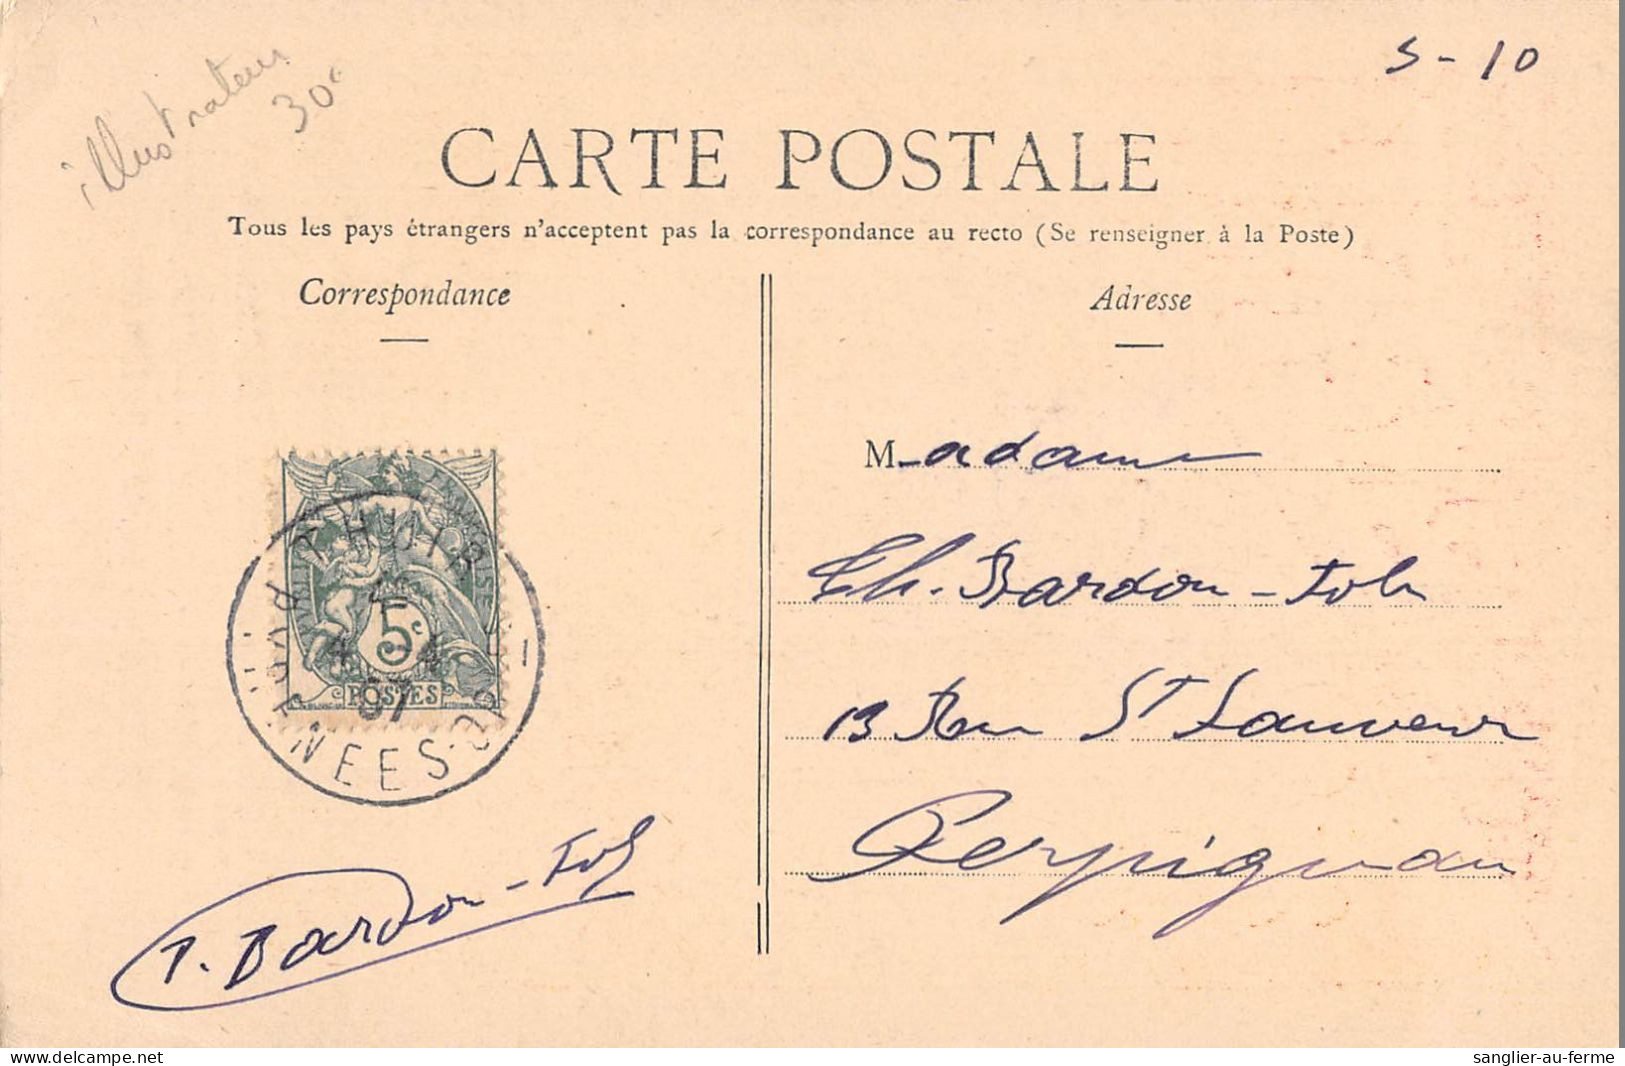 S-10
illustrateur
30
CARTE POSTALE
Tous les pays étrangers n'acceptent pas la correspondance au recto (Se renseigner à la Poste)
Correspondance
Adresse
THUIR
4 4
07
5c
POSTES
Madame
Th. Bardou-Job
13 Rue St Sauveur
Perpignan
P. Bardou-Job
www.delcampe.net
sanglier-au-ferme